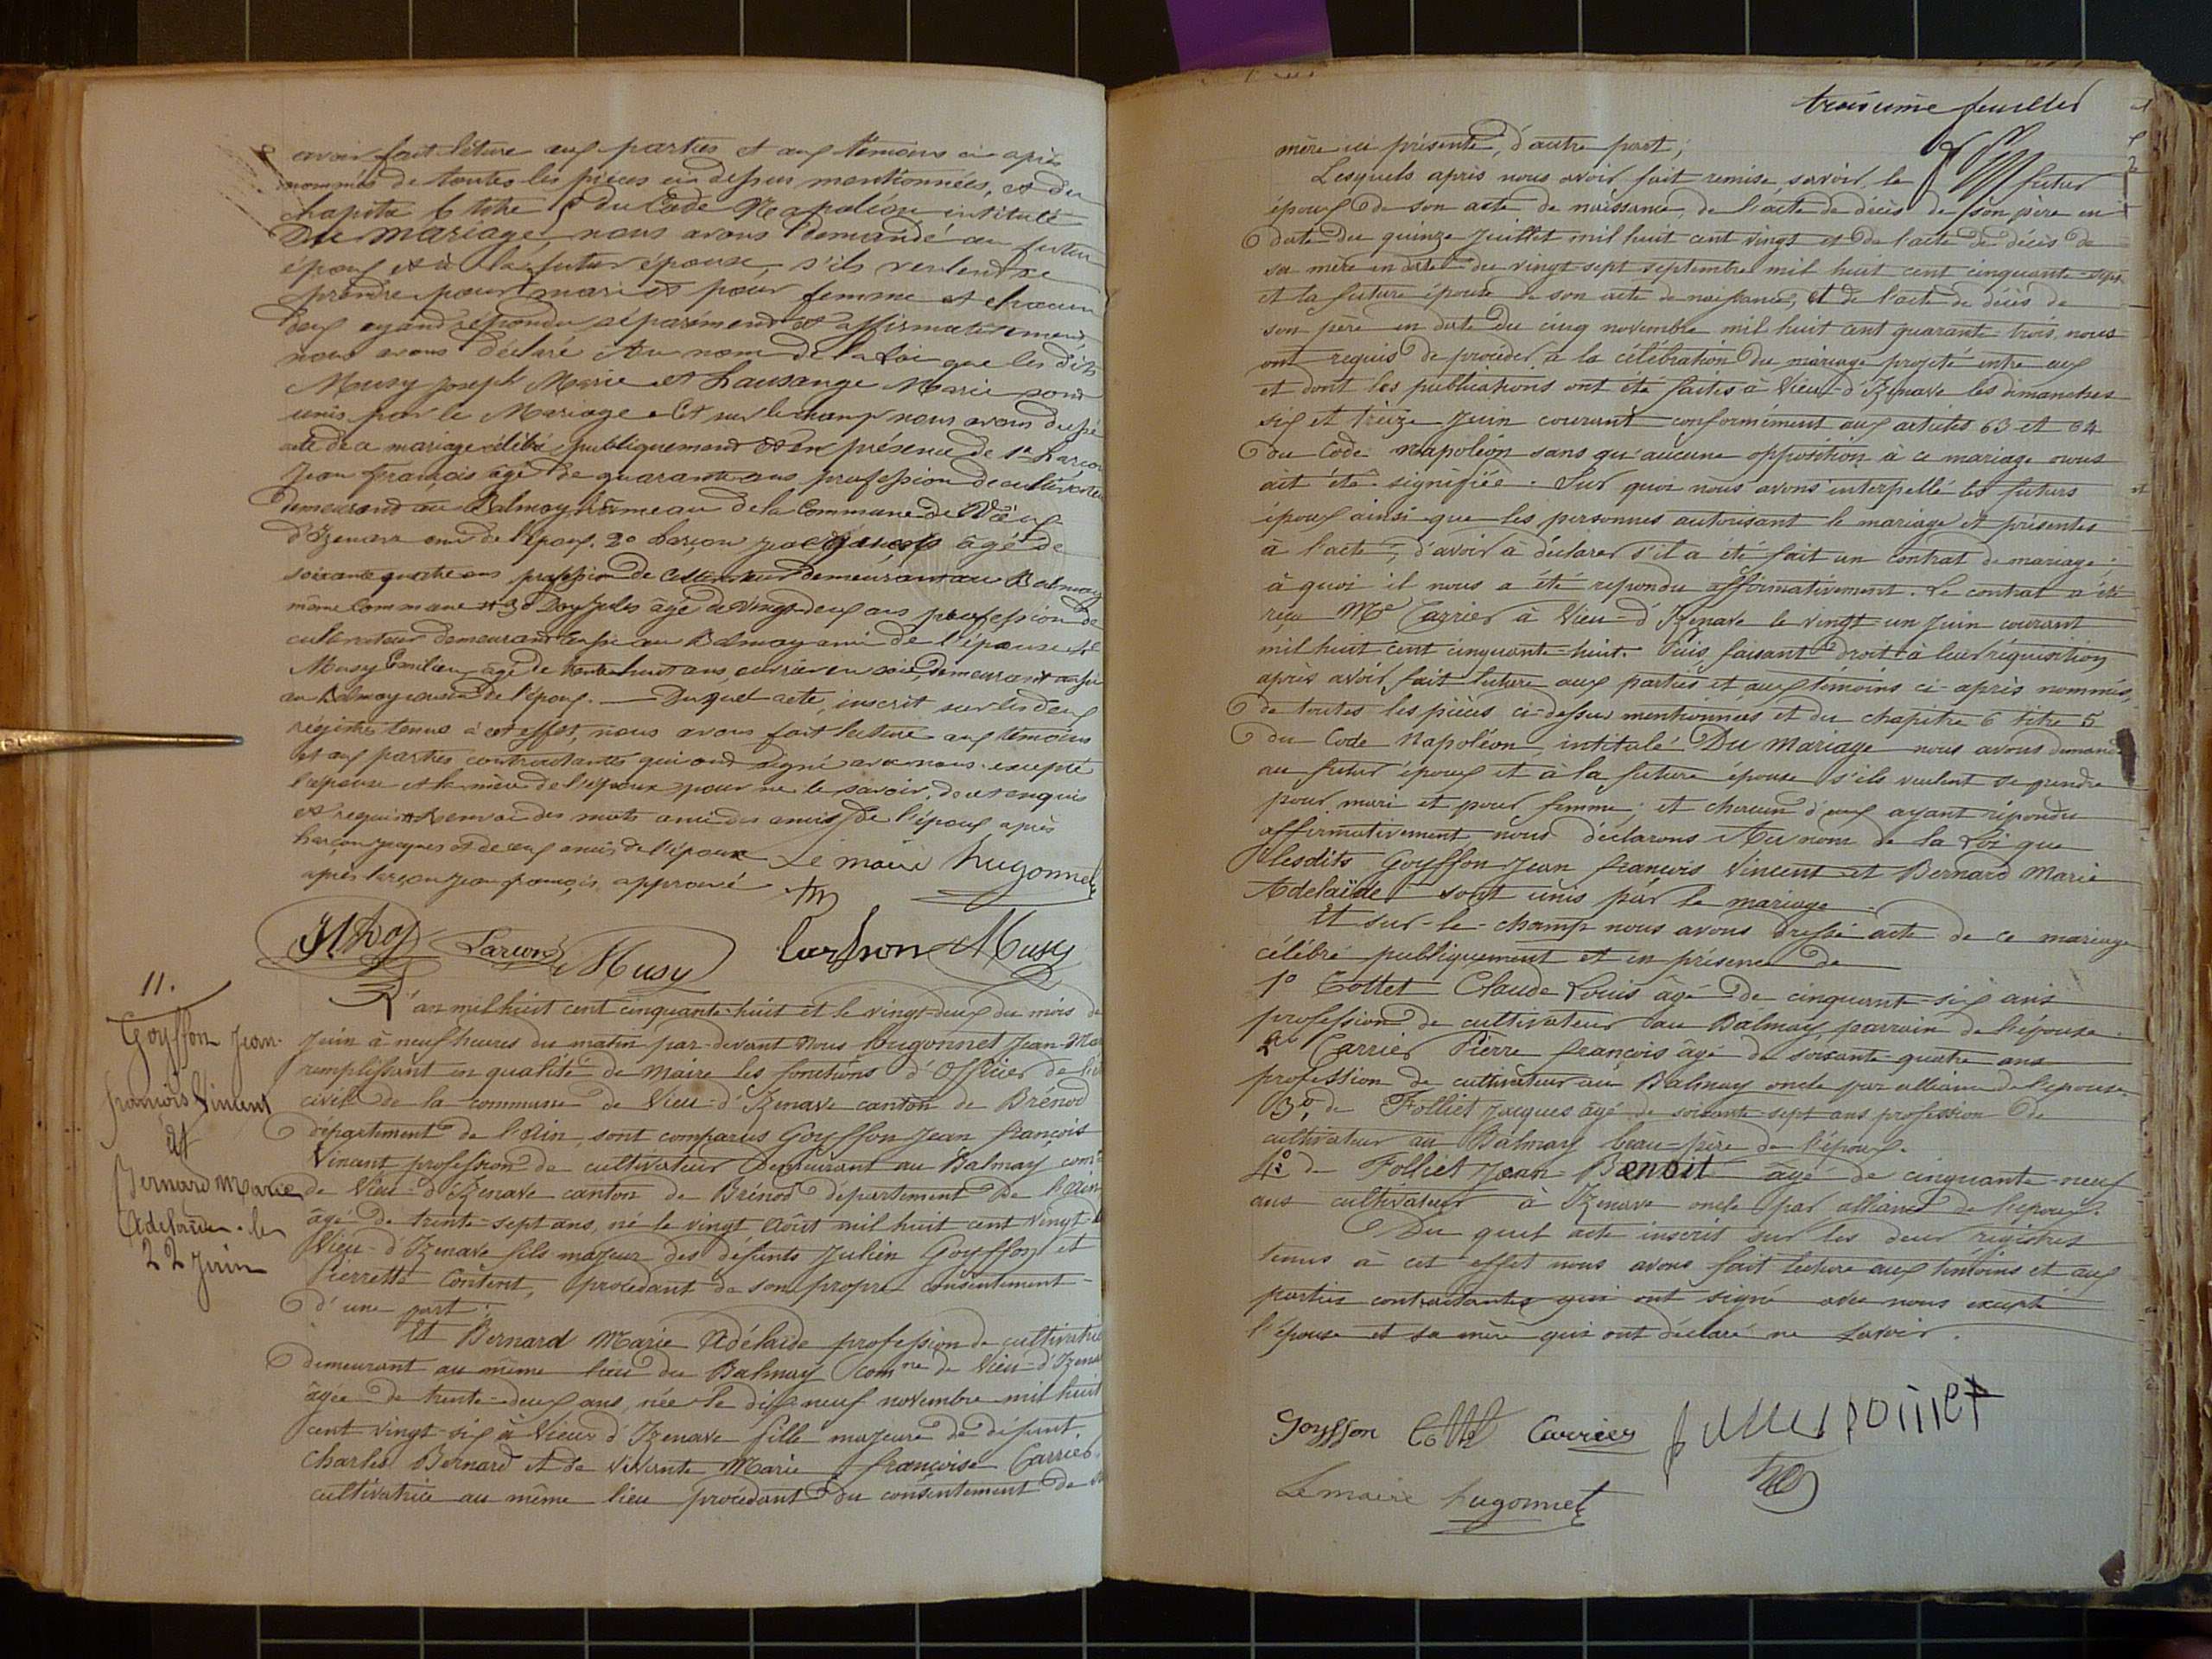 avoir fait lêture aux parties et aux témoins ci après
nommés de toutes les pièces ci dessus mentionnées, et du
chapitre 6 titre 5 du Code Napoléon intitulé
Du Mariage, nous avons demandé au futur
époux et à la futur épouse, s'ils veulent se
prendre pour mari et pour femme et chacun
d'eux ayand répondu séparément et affirmativement,
nous avons déclaré Au nom de la Loi que les dits
Musy Joseph Marie et Lausange Marie sont
unis par le Mariage. Et sur le champ nous avons dressé
acte de ce mariage célébré publiquement et en présence de 1º Larçon
Jean François âgé de quarante ans profession de cultivateur
demeurand au Balmay hameau de la Commune de Vieu
d'Izenave ami de l'époux. 2º Larçon Jacques âgé de
soixante quatre ans profession de Cultivateur demeurant au Balmay
même Commune et 3º Doy Jules âgé de vingt deux ans profession de
cultivateur demeurand aussi au Balmay ami de l'épouse et
Musy Emilien âgé de trente huit ans, ouvrier en soie, demeurant aussi
au Balmay cousin de l'époux. — Duquel acte, inscrit sur les deux
régistres tenus à cet effet, nous avons fait lecture aux témoins
et aux parties contractantes qui ont signé avec nous excepté
l'épouse et la mère de l'époux pour ne le savoir, de ce enquis
et requis renvoi des mots amis de l'époux après
Larçon Jacques et de ceux amis de l'époux
après Larçon Jean françois, approuvé Le maire hugonnet
JJ Doy Larçon Musy Larson Musy
11.
Goyffon Jean
françois Vincent
et
Bernard Marie
Adélaïde. le
22 Juin
L'an mil huit cent cinquante-huit et le vingt-deux du mois de
Juin à neuf heures du matin par-devant Nous hugonnet Jean-Ma
remplissant en qualité de Maire les fonctions d'Officier de l'é
civil de la commune de Vieu-d'Izenave canton de Brénod
département de l'Ain, sont comparus Goyffon Jean françois
Vincent profession de cultivateur demeurant au Balmay com
de Vieu-d'Izenave canton de Brénod département de l'Ain
âgé de trente-sept ans, né le vingt Août mil huit cent vingt
Vieu-d'Izenave fils majeur des défunts Julien Goyffon et
Pierrette Content, procédant de son propre consentement
d'une part;
Et Bernard Marie Adélaïde profession de cultivatrice
demeurant au même lieu du Balmay comne de Vieu-d'Izenave
âgée de trente-deux ans, née le dix-neuf novembre mil huit
cent vingt-six à Vieu-d'Izenave fille majeure de défunt
Charles Bernard et de vivante Marie françoise Carrier
cultivatrice au même lieu procédant du consentement de
troisième feuillet
mère ici présente, d'autre part;
Lesquels après nous avoir fait remise, savoir, le futur
époux de son acte de naissance, de l'acte de décès de son père en
date du quinze Juillet mil huit cent vingt et de l'acte de décès de
sa mère en date du vingt-sept septembre mil huit cent cinquante-sept
et la future épouse de son acte de naissance, et de l'acte de décès de
son père en date du cinq novembre mil huit cent quarante-trois, nous
ont requis de procéder à la célébration du mariage projeté entre eux
et dont les publications ont été faites à Vieu-d'Izenave les dimanches
six et treize Juin courant conformément aux articles 63 et 64
du Code Napoléon sans qu'aucune opposition à ce mariage nous
ait été signifiée. Sur quoi nous avons interpellé les futurs
époux ainsi que les personnes autorisant le mariage et présentes
à l'acte, d'avoir à déclarer s'il a été fait un contrat de mariage;
à quoi il nous a été repondu affirmativement. Le contrat a été
reçu Me Carrier à Vieu-d'Izenave le vingt-un Juin courant
mil huit cent cinquante-huit. Puis faisant droit à leur réquisition
après avoir fait lecture aux parties et aux témoins ci-après nommés,
de toutes les pièces ci-dessus mentionnées et du chapitre 6 titre 5
du Code Napoléon intitulé Du Mariage nous avons demandé
au futur époux et à la future épouse s'ils veulent se prendre
pour mari et pour femme; et chacun d'eux ayant répondu
affirmativement nous déclarons Au nom de la Loi que
lesdits Goyffon Jean françois Vincent et Bernard Marie
Adelaïde sont unis par le mariage.
Et sur-le-champ nous avons dressé acte de ce mariage
célébré publiquement et en présence de
1º Cottet Claude Louis âgé de cinquante-six ans
profession de cultivateur au Balmay, parrain de l'épouse.
2º Carrier Pierre françois âgé de soixante-quatre ans
profession de cultivateur au Balmay oncle par alliance de l'épouse.
3º, de Folliet Jacques âgé de soixante-sept ans profession de
cultivateur au Balmay beau-père de l'époux.
4º de Folliet Jean-Benoit âgé de cinquante-neuf
ans cultivateur à Izenave oncle par alliance de l'époux.
Du quel acte inscrit sur les deux registres
tenus à cet effet nous avons fait lecture aux témoins et aux
parties contractantes qui ont signé avec nous excepté
l'épouse et sa mère qui ont déclaré ne savoir.
Goyffon Cottet Carrier
Le maire hugonnet